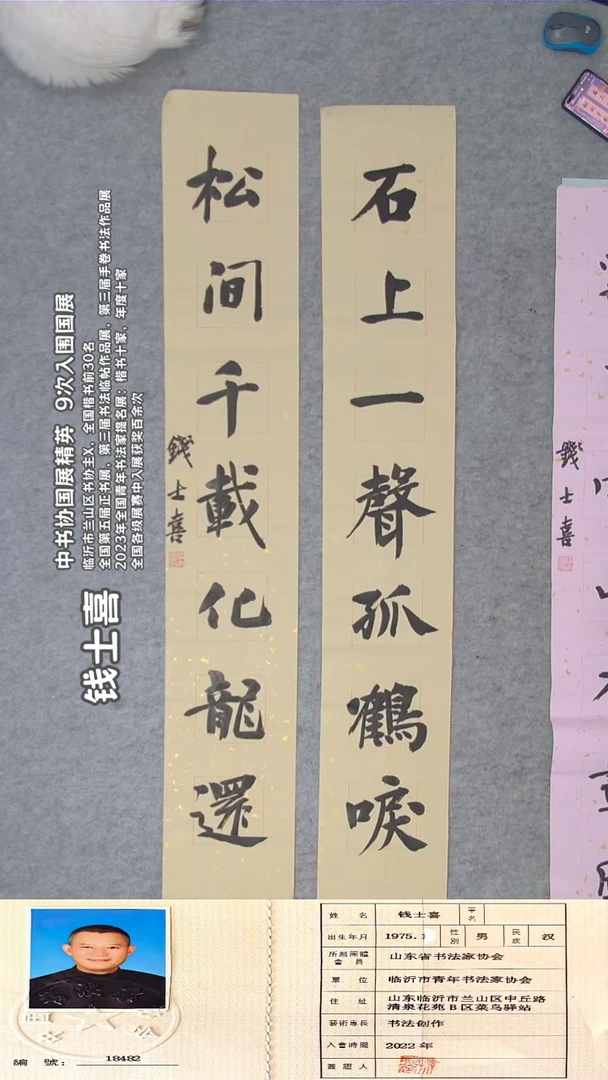 石上一聲孤鶴唳
松间千載化龍還
錢士喜
錢士喜
钱士喜
中书协国展精英 9次入围国展
临沂市兰山区书协主X，全国楷书前30名
全国第五届正书展，第三届书法临帖作品展，第三届手卷书法作品展
2023年全国青年书法家提名展：楷书十家，年度十家
全国各级展赛中入展获奖百余次
姓 名 钱士喜 笔名
出生年月 1975.1 性别 男 民族 汉
所属团体會員 山东省书法家协会
單 位 临沂市青年书法家协会
住 址 山东临沂市兰山区中丘路清泉花苑B区菜鸟驿站
藝術專長 书法创作
入會時間 2022年
簽證人
編 號： 18482